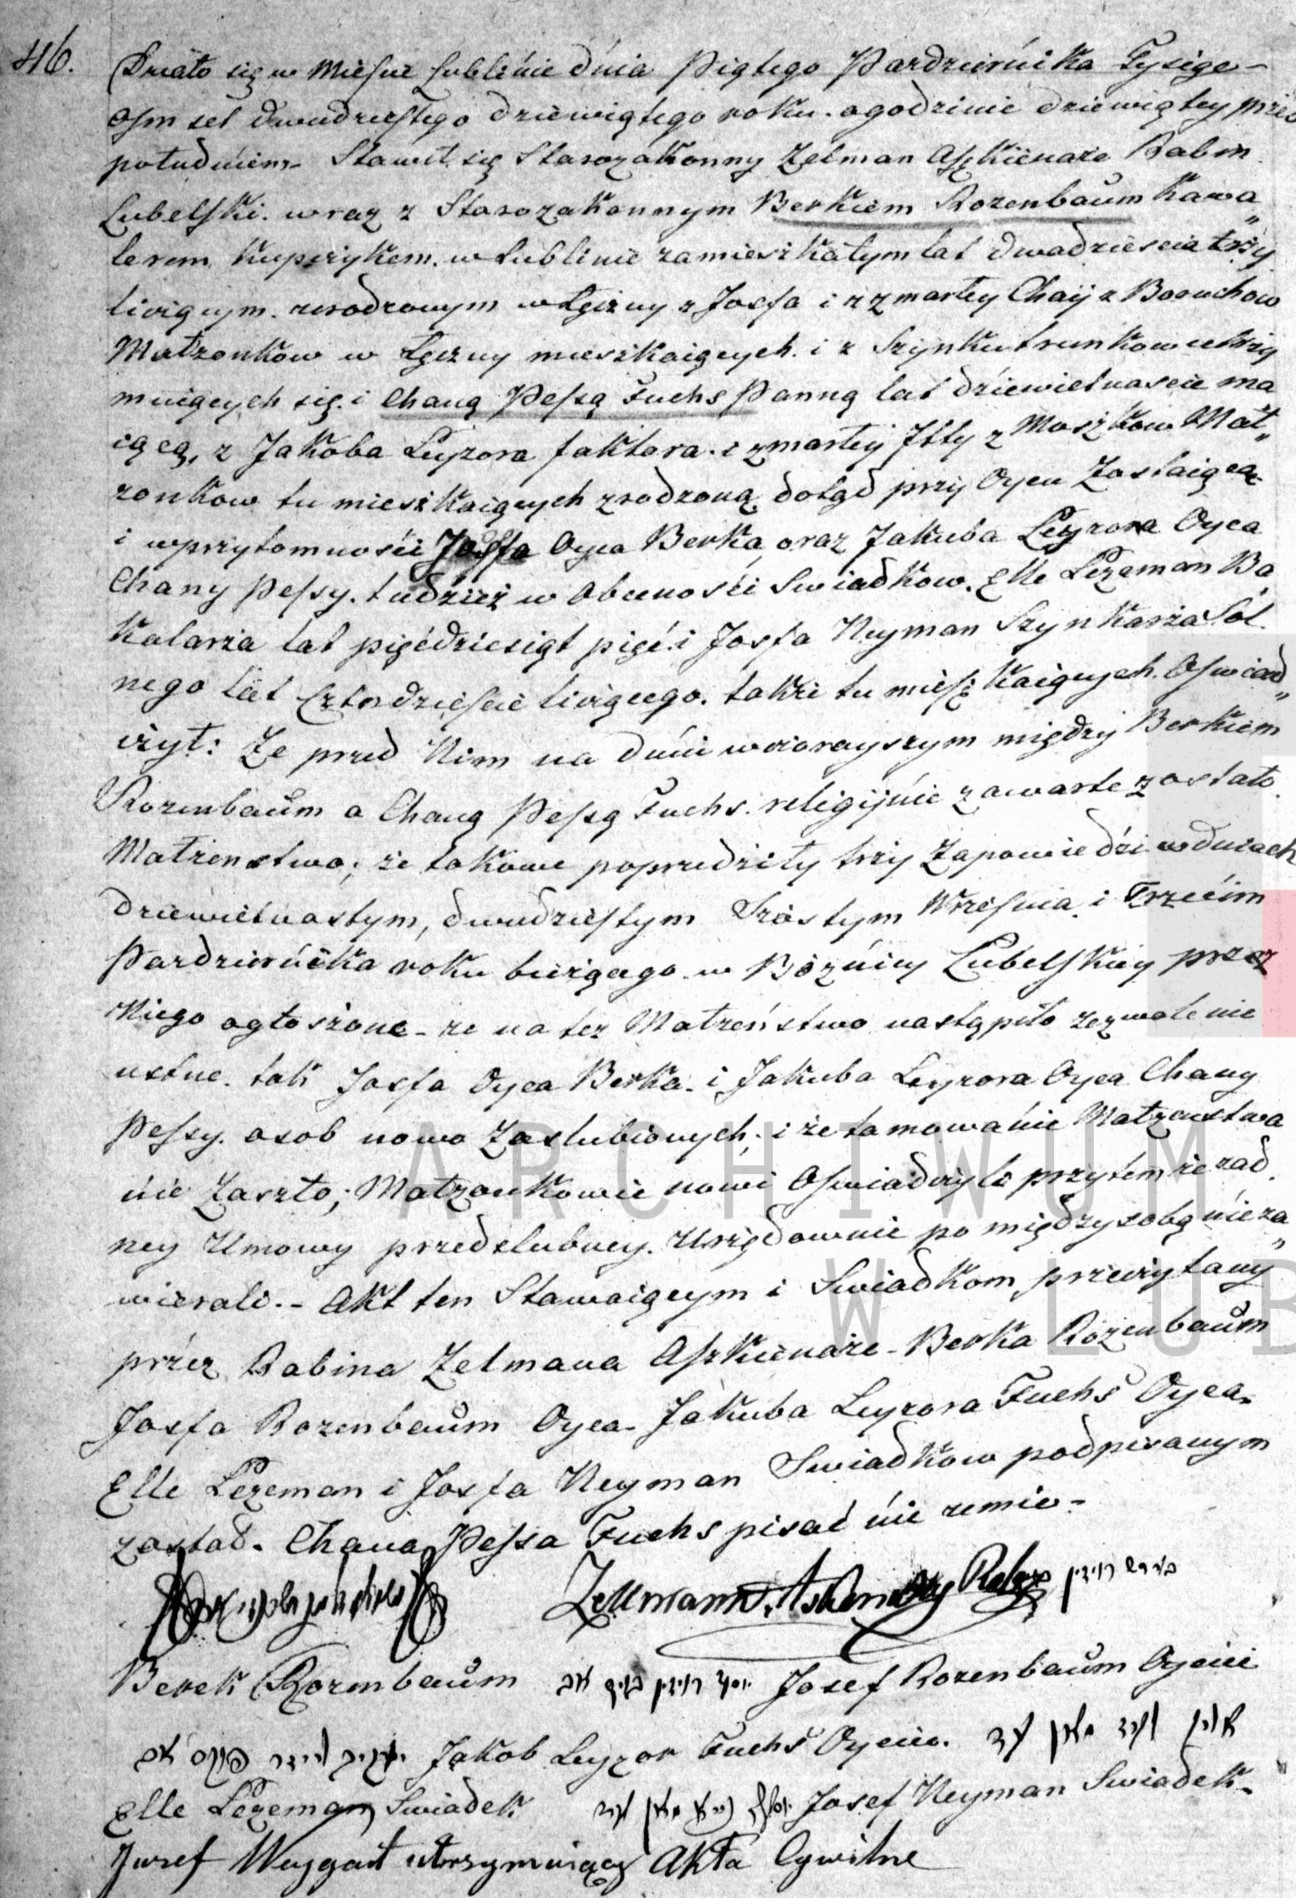 46.
Działo się w Mieście Lublinie dnia Piątego Pazdziernika Tysiąc
Osmset dwudziestego dziewiątego roku. o godzinie dziewiątey przed
południem. Stawił się Starozakonny Zelman Aszkienaze Rabin
Lubelski. wraz z Starozakonnym Berkiem Rozenbaum Kawa„
lerem Kupczykem. w Lublinie zamieszkałym lat dwadziescia trzy
liczącym. urodzonym w Łęczny z Josfa i z zmarłey Chaij z Boruchow
Małzonków w Łęczny mieszkaiących. i z Szynku trunkow utrzy
muiących się. i Chaną Pessą Fuchs Panną lat dziewietnascie ma
iącą, z Jakoba Leyzora faktora. i zmarłej Itty z Moszkow Mał„
zonkow tu mieszkaiących zrodzoną, dotąd przy Oycu Zostaiącą
i w przytomności Josfa Oyca Berka, oraz Jakuba Leyzora Oyca
Chany Pessy. tudzież w Obecności Swiadkow. Elle Lezeman Ba
kalarza lat pięćdziesiąt pięć i Josfa Neyman Szynkarza Sol
nego lat Czterdzieście liczącego. także tu mieszkaiących. Oswiad„
czył: Ze przed Nim na dniu wczorayszym między Berkiem
Rozenbaum a Chaną Pessą Fuchs. religijnie zawarte zostało
Małzenstwo; że takowe poprzedziły trzy Zapowiedzi w dniach
dziewietnastym, dwudziestym Szóstym Wrzesnia. i Trzecim
Pazdziernika roku bieżącego w Bóżnicy Lubelskiey przez
Niego ogłoszone - ze na tez Małzeństwo nastąpiło zezwolenie
ustne. tak Josfa Oyca Berka. i Jakuba Leyzora Oyca Chany
Pessy. osob nowo Zaslubionych; i że tamowanie Małzenstwa
nie Zaszło; Małzonkowie nowi Oswiadczyli przytem że żad
ney Umowy przedslubney. Urzędownie pomiędzy sobą nie za„
wierali. - Akt ten Stawaiącym i Swiadkom przeczytany
przez Rabina Zelmana Aszkienaze - Berka Rozenbaum
Josfa Rozenbaum Oyca. Jakuba Leyzora Fuchs Oyca.
Elle Lezeman i Josfa Neyman Swiadkow podpisanym
został. Chana Pessa Fuchs pisać nie umie -
Zellmann Askenazy
Berek Rozenbaum Josef Rozenbaum Oyciec
Jakob Leyzor Fuchs Oyciec.
Elle Lezeman Swiadek Josef Neyman Swiadek.
Jozef Utrzymuiący Akta Cywilne
ARCHIWUM
W LUB